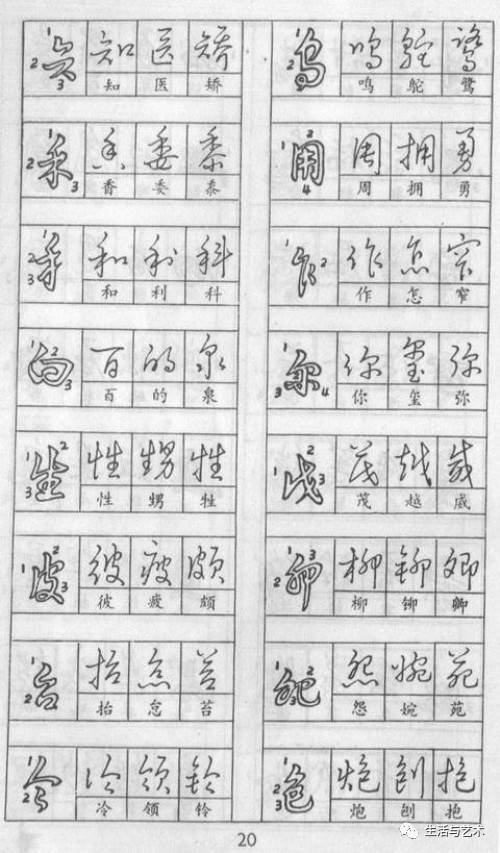 矢 知 医 矫
知 医 矫
禾 香 委 黍
香 委 黍
禾 和 利 科
和 利 科
白 百 的 泉
百 的 泉
生 性 甥 牲
性 甥 牲
皮 彼 疲 颇
彼 疲 颇
台 抬 怠 苔
抬 怠 苔
令 冷 领 铃
冷 领 铃
鸟 鸣 鸵 鹭
鸣 鸵 鹭
用 周 拥 勇
周 拥 勇
乍 作 怎 窄
作 怎 窄
尔 你 玺 弥
你 玺 弥
戊 茂 越 威
茂 越 威
卯 柳 铆 卿
柳 铆 卿
夗 怨 婉 苑
怨 婉 苑
包 炮 刨 抱
炮 刨 抱
20
生活与艺术